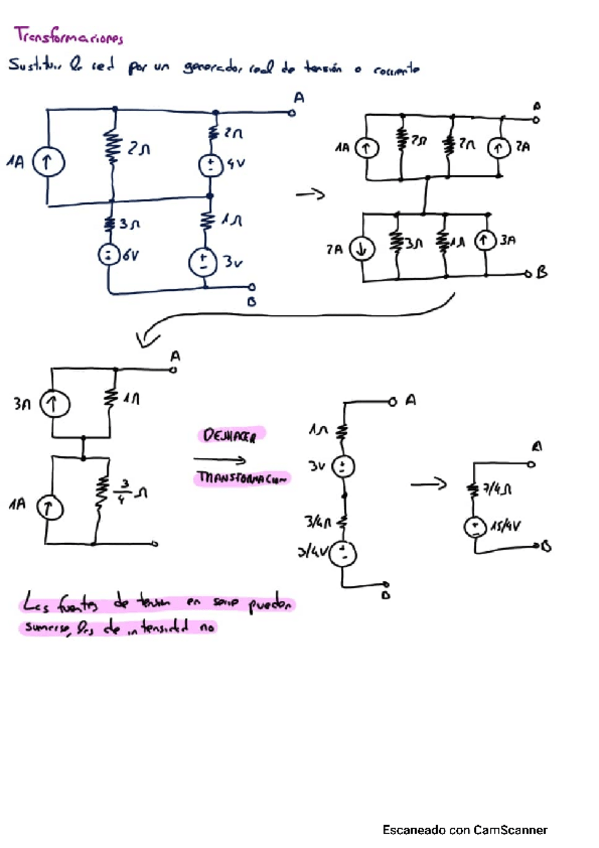 Transformaciones
Sustituir la red por un generador real de tensión o corriente
A
1A
2Ω
2Ω
4V
3Ω
1Ω
6V
3V
B
→
A
1A
2Ω
2Ω
2A
2A
3Ω
1Ω
3A
B
A
3A
1Ω
1A
3/4 Ω
DESHACER
TRANSFORMACION
A
1Ω
3V
3/4Ω
3/4V
B
→
A
7/4Ω
15/4V
B
Las fuentes de tensión en serie pueden
sumarse, las de intensidad no
Escaneado con CamScanner